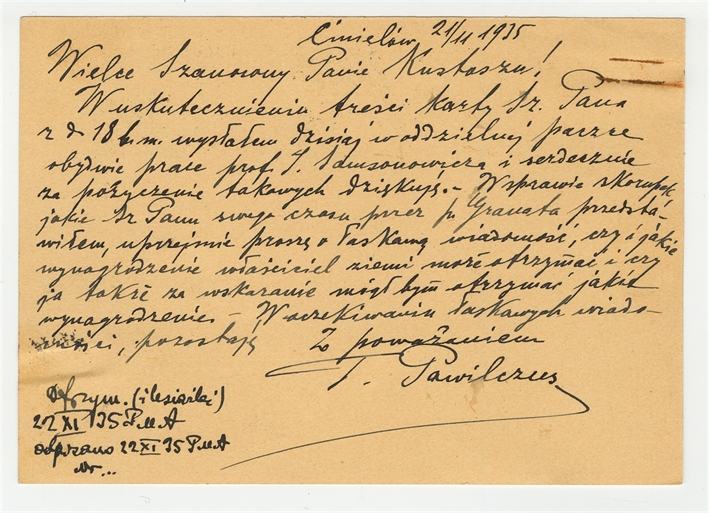 Ćmielów, 21/11 1935
Wielce Szanowny Panie Kustoszu!
W uskutecznieniu treści karty Sz. Pana
z d 18 b.m. wysłałem dzisiaj w oddzielnej paczce
obydwie prace prof. J. Samsonowicza i serdecznie
za pożyczenie takowych dziękuję. – W sprawie skorupek
jakie Sz Panu swego czasu przez p. Granata przedsta-
wiłem, uprzejmie proszę o łaskawą wiadomość, czy i jakie
wynagrodzenie właściciel ziemi może otrzymać i czy
ja także za wskazanie mógłbym otrzymać jakieś
wynagrodzenie. – W oczekiwaniu łaskawych wiado-
mości, pozostaję
Z poważaniem
T. Pawilczus
Otrzym. (i książki)
22 XI 35 P.M.A
odpisano 22 XI 35 P.M.A
Nr...